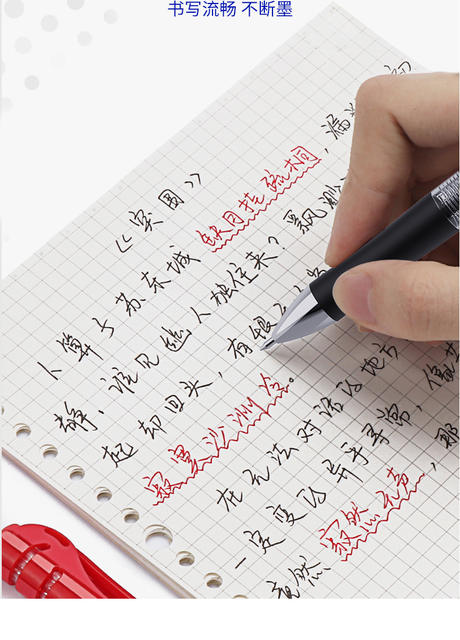 书写流畅 不断墨
《突围》
卜算子苏东坡 缺月挂疏桐，漏
静。谁见幽人独往来？飘渺
起却回头，有恨
寂寞沙洲冷。
在无法对话的地方
一定变的异乎寻常，像
竟然寂然无声，那